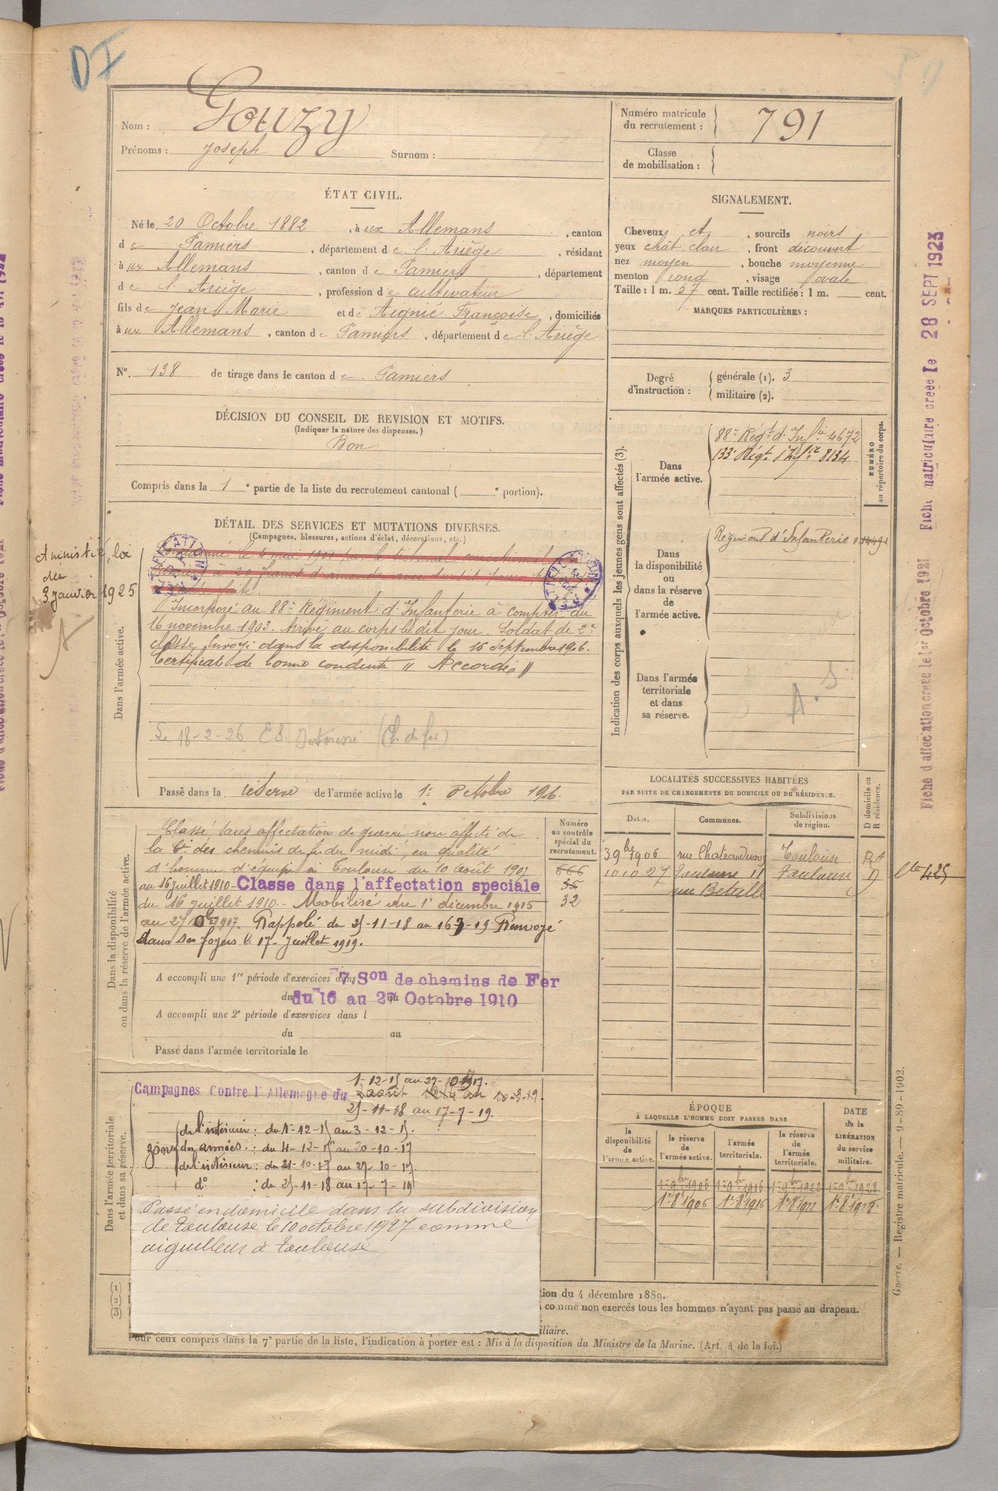 DI
Nom : Gouzy
Prénoms : Joseph Surnom :
Numéro matricule du recrutement : 791
Classe de mobilisation :
ÉTAT CIVIL.
Né le 20 Octobre 1882, à ux Allemans, canton
de Pamiers, département de l'Ariège, résidant
à ux Allemans, canton de Pamiers, département
de l'Ariège, profession de cultivateur
fils de Jean Marie et de Aignie Françoise, domiciliés
à ux Allemans, canton de Pamiers, département de l'Ariège
N° 138 de tirage dans le canton de Pamiers
SIGNALEMENT.
Cheveux et, sourcils noirs
yeux chat clair, front découvert
nez moyen, bouche moyenne
menton rond, visage ovale
Taille : 1 m. 57 cent. Taille rectifiée : 1 m. cent.
MARQUES PARTICULIÈRES :
Degré d'instruction : générale (1). 3
militaire (2).
DÉCISION DU CONSEIL DE REVISION ET MOTIFS.
(Indiquer la nature des dispenses.)
Bon
Compris dans la 1e partie de la liste du recrutement cantonal ( e portion).
DÉTAIL DES SERVICES ET MUTATIONS DIVERSES.
(Campagnes, blessures, actions d'éclat, décorations, etc.)
Amnistié, loi
du
3 janvier 1925
Dans l'armée active.
Incorporé au 88e Régiment d'Infanterie à compter du
16 novembre 1903. Arrivé au corps le dit jour. Soldat de 2e
classe. Envoyé dans la disponibilité le 15 Septembre 1906.
Certificat de bonne conduite "Accordé"
Le 18-2-26 (Ch de fer)
Passé dans la réserve de l'armée active le 1er octobre 1906.
Indication des corps auxquels les jeunes gens sont affectés (3).
Dans l'armée active.
88e Régt d'Infie 4672
133e Régt d'Infie 8134
NUMÉRO au répertoire du corps.
Dans la disponibilité ou dans la réserve de l'armée active.
Régiment d'Infanterie
Dans l'armée territoriale et dans sa réserve.
A.S
Dans la disponibilité ou dans la réserve de l'armée active.
Classé sans affectation de guerre non affecté de
la Cie des chemins de fer du midi, en qualité
d'homme d'équipe à Toulouse du 10 août 1907
au 16 juillet 1910 - Classé dans l'affectation spéciale
du 16 juillet 1910 - Mobilisé du 1er décembre 1915
au 27 1917. Rappelé du 25-11-18 au 16-7-19 Renvoyé
dans ses foyers le 17 Juillet 1919.
Numéro au contrôle spécial du recrutement.
666
32
A accompli une 1re période d'exercices dans 7e Son de chemins de Fer
du 16 au 27 Octobre 1910
A accompli une 2e période d'exercices dans l
du au
Passé dans l'armée territoriale le
LOCALITÉS SUCCESSIVES HABITÉES
PAR SUITE DE CHANGEMENTS DE DOMICILE OU DE RÉSIDENCE.
Dates. Communes. Subdivisions de région. D domicile ou R résidence.
3 9bre 1906 rue Chateaudun Toulouse
10 10 27 Toulouse 11 Toulouse D
rue Béteille
Dans l'armée territoriale et dans sa réserve.
Campagnes contre l'Allemagne du 1-12-15 au 27-10-1917.
25-11-18 au 17-7-19.
zone de l'intérieur : du 1-12-15 au 3-12-15.
des armées : du 4-12-15 au 20-10-17
de l'intérieur : du 21-10-17 au 27-10-17.
do : du 25-11-18 au 17-7-19
Passé en domicile dans la subdivision
de Toulouse le 10 octobre 1927 comme
aiguilleur à Toulouse
ÉPOQUE
À LAQUELLE L'HOMME DOIT PASSER DANS
la disponibilité de l'armée active. la réserve de l'armée active. l'armée territoriale. la réserve de l'armée territoriale. DATE de la LIBÉRATION du service militaire.
1er 9bre 1906 1er 9bre 1916 1er 9bre 1922 1er 9bre 1928
1er 8bre 1906 1er 8bre 1916
tion du 4 décembre 1889.
comme non exercés tous les hommes n'ayant pas passé au drapeau.
iliaire.
Pour ceux compris dans la 7e partie de la liste, l'indication à porter est : Mis à la disposition du Ministre de la Marine. (Art. 4 de la loi.)
Guerre. — Registre matricule. — 9-89-1902.
Fiche d'affectation créée le 1er Octobre 1921 Fiche matriculaire créée le 28 SEPT 1923